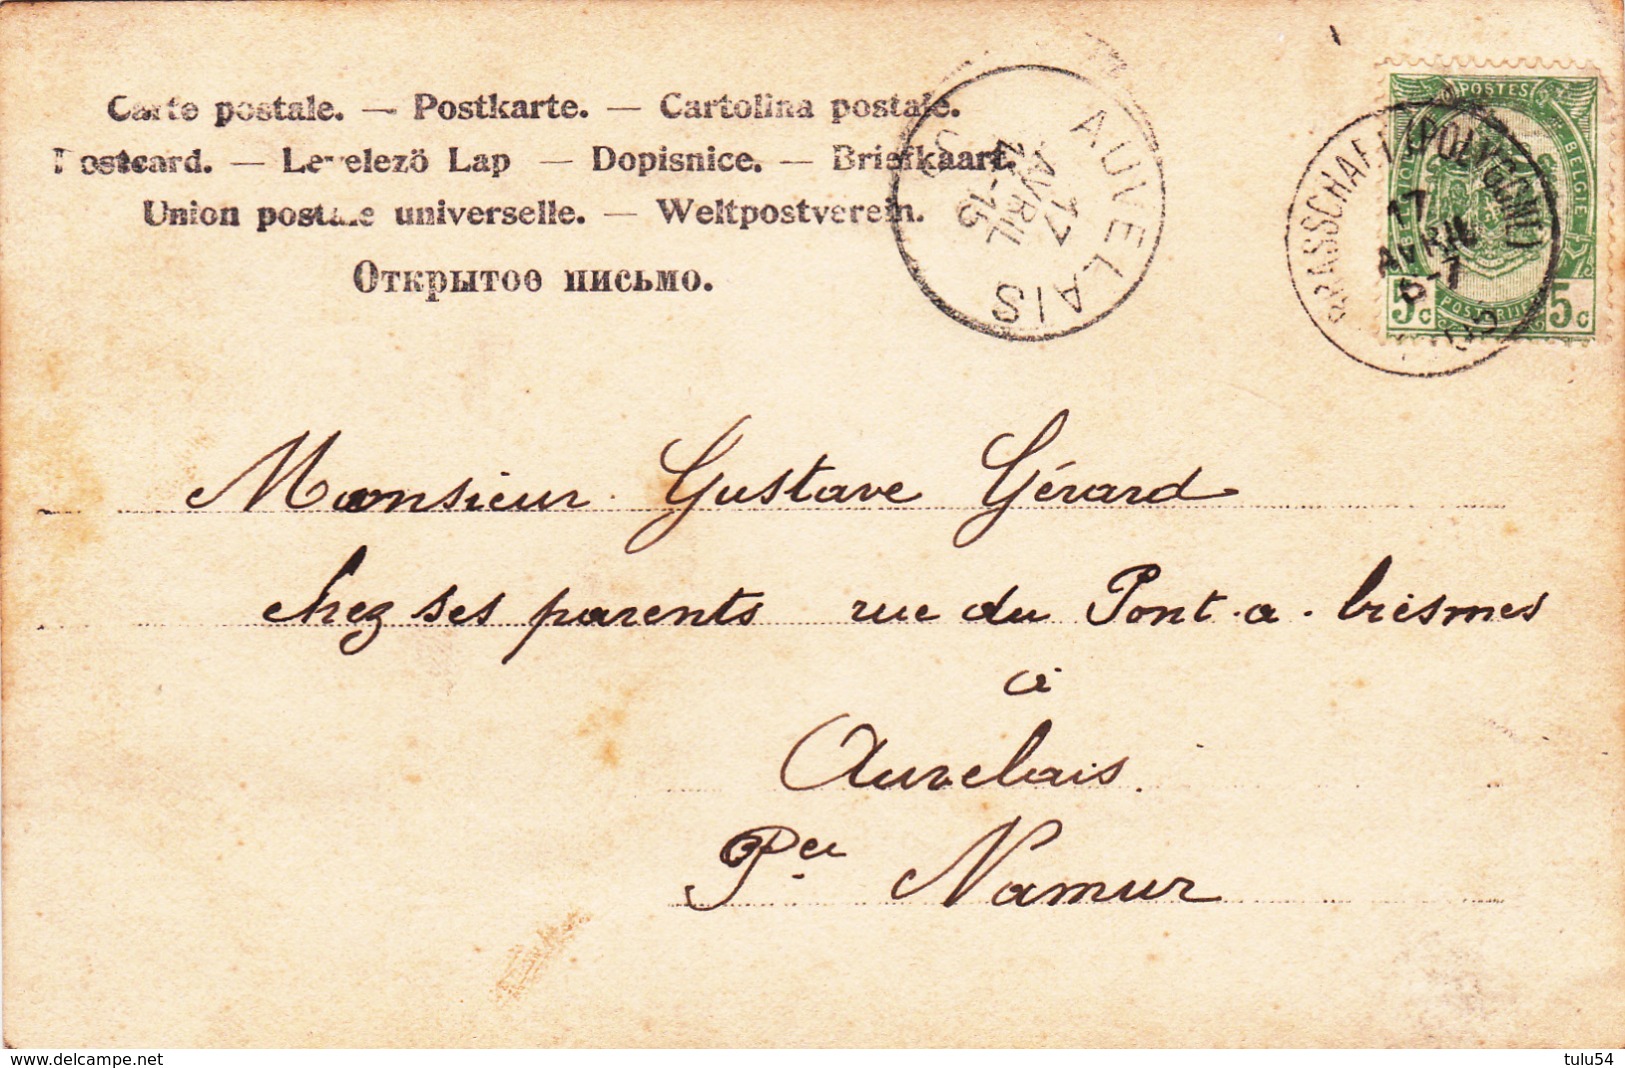 Carte postale. — Postkarte. — Cartolina postale.
Postcard. — Levelezö Lap — Dopisnice. — Briefkaart.
Union postale universelle. — Weltpostverein.
Открытое письмо.
AUVELAIS
17
AVRIL
BRASSCHAET (POLYGONE)
17
AVRIL
6-7
POSTES
BELGIE
POSTERIJEN
5c 5c
Monsieur Gustave Gérard
chez ses parents rue du Pont-a-biesmes
à
Auvelais.
Pce Namur
www.delcampe.net
tulu54